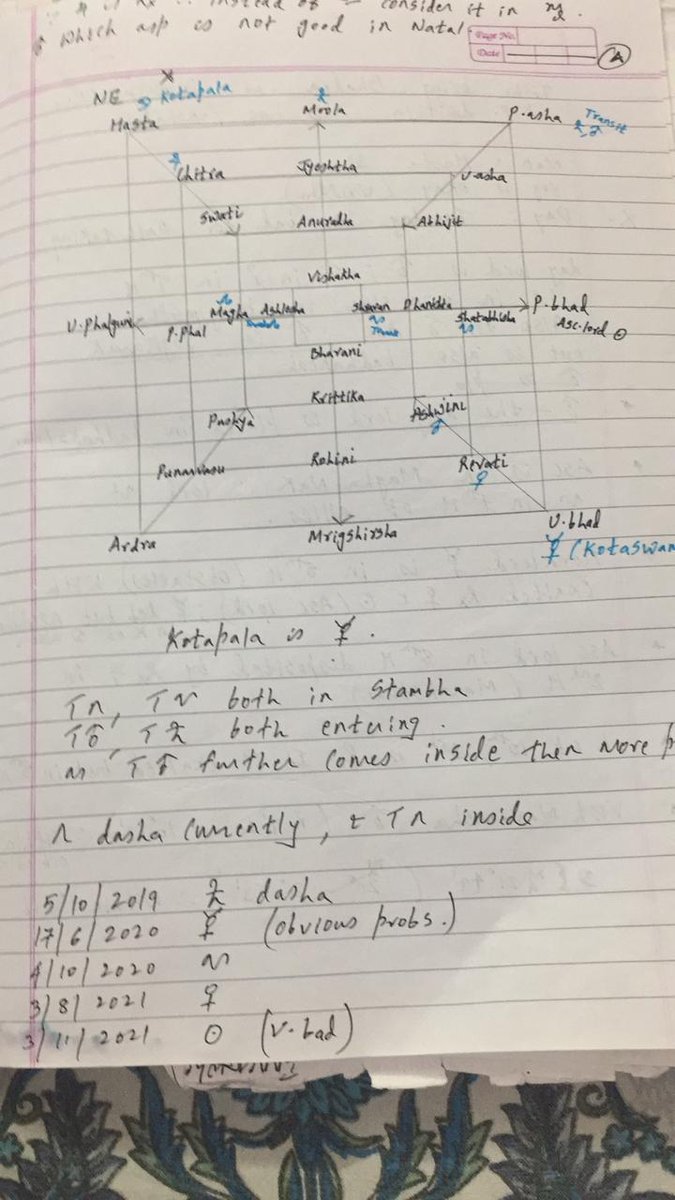 instead of consider it in
which asp is not good in Natal.
Page No.
Date
A
NE Kotapala
Hasta
Moola
P.asha
Transit
Chitra
Jyeshtha
U-asha
Swati
Anuradha
Abhijit
Vishakha
U.phalguni
P.phal
Magha
Ashlesha
Shravan
Dhanishta
Shatabhisha
P.bhad
Asc.lord ☉
Bharani
Krittika
Pushya
Ashwini
♂
Punarvasu
Rohini
Revati
♀
Ardra
Mrigshirsha
U.bhad
☿ (Kotaswam
Kotapala is ☿.
both in Stambha
both entering.
further comes inside then more
dasha currently, inside
5/10/2019 dasha
17/6/2020 ☿ (obvious probs.)
4/10/2020
3/8/2021 ♀
3/11/2021 ☉ (V.bad)